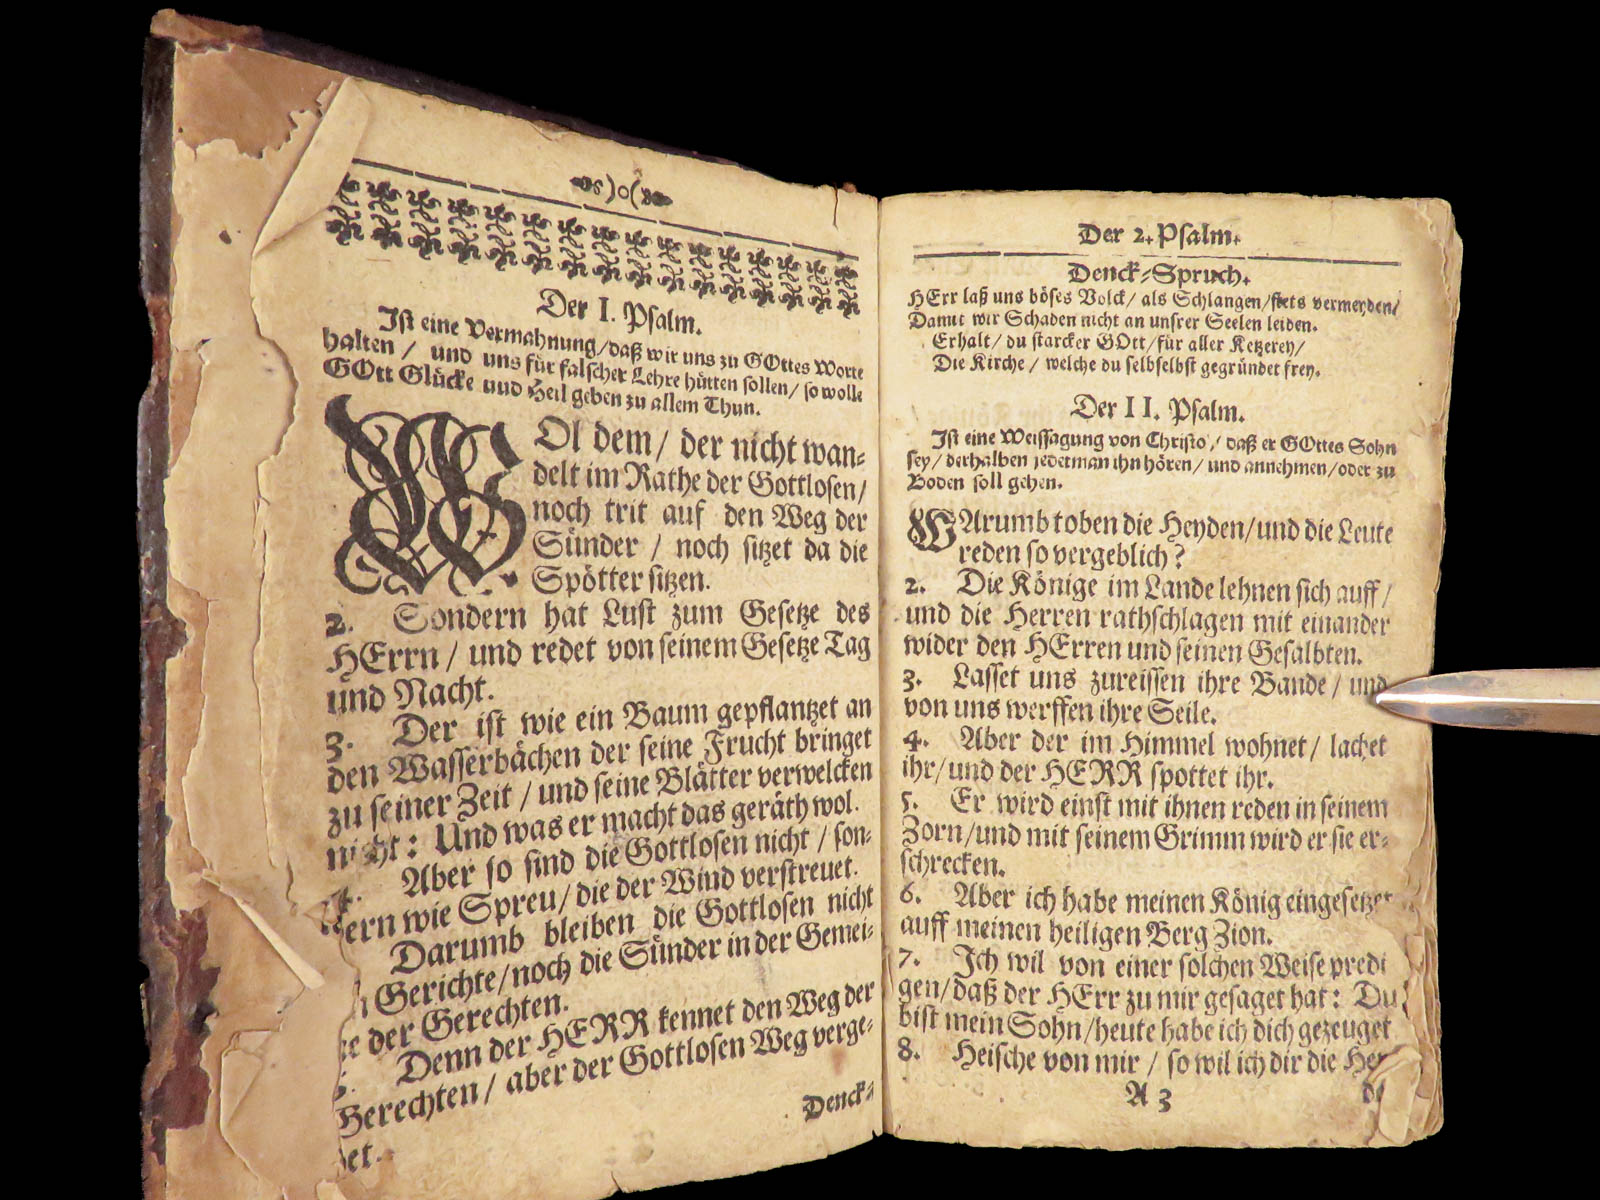 Der I. Psalm.
Ist eine Vermahnung/daß wir uns zu GOttes Worte
halten / und uns für falscher Lehre hütten sollen/ so wolle
GOtt Glücke und Heil geben zu allem Thun.
WOl dem/ der nicht wan⸗
delt im Rathe der Gottlosen/
noch trit auf den Weg der
Sünder / noch sitzet da die
Spötter sitzen.
2. Sondern hat Lust zum Gesetze des
HErrn / und redet von seinem Gesetze Tag
und Nacht.
3. Der ist wie ein Baum gepflantzet an
den Wasserbächen der seine Frucht bringet
zu seiner Zeit / und seine Blätter verwelcken
nicht: Und was er macht das geräth wol.
4. Aber so sind die Gottlosen nicht / son⸗
ern wie Spreu/ die der Wind verstreuet.
Darumb bleiben die Gottlosen nicht
Gerichte/noch die Sünder in der Gemei⸗
ne der Gerechten.
Denn der HERR kennet den Weg der
Gerechten/ aber der Gottlosen Weg verge⸗
het.
Denck⸗
Der 2. Psalm.
Denck⸗Spruch.
HErr laß uns böses Volck/ als Schlangen/stets vermeyden/
Damit wir Schaden nicht an unsrer Seelen leiden.
Erhalt/ du starcker GOtt/für aller Ketzerey/
Die Kirche / welche du selbselbst gegründet frey.
Der II. Psalm.
Ist eine Weissagung von Christo / daß er GOttes Sohn
sey/ derhalben jederman ihn hören/ und annehmen/oder zu
Boden soll gehen.
WArumb toben die Heyden/und die Leute
reden so vergeblich?
2. Die Könige im Lande lehnen sich auff/
und die Herren rathschlagen mit einander
wider den HErren und seinen Gesalbten.
3. Lasset uns zureissen ihre Bande / und
von uns werffen ihre Seile.
4. Aber der im Himmel wohnet/ lachet
ihr/ und der HERR spottet ihr.
5. Er wird einst mit ihnen reden in seinem
Zorn/und mit seinem Grimm wird er sie er⸗
schrecken.
6. Aber ich habe meinen König eingesetzet
auff meinen heiligen Berg Zion.
7. Ich wil von einer solchen Weise predi
gen/daß der HErr zu mir gesaget hat: Du
bist mein Sohn/heute habe ich dich gezeuget
8. Heische von mir / so wil ich dir die Hey
A 3